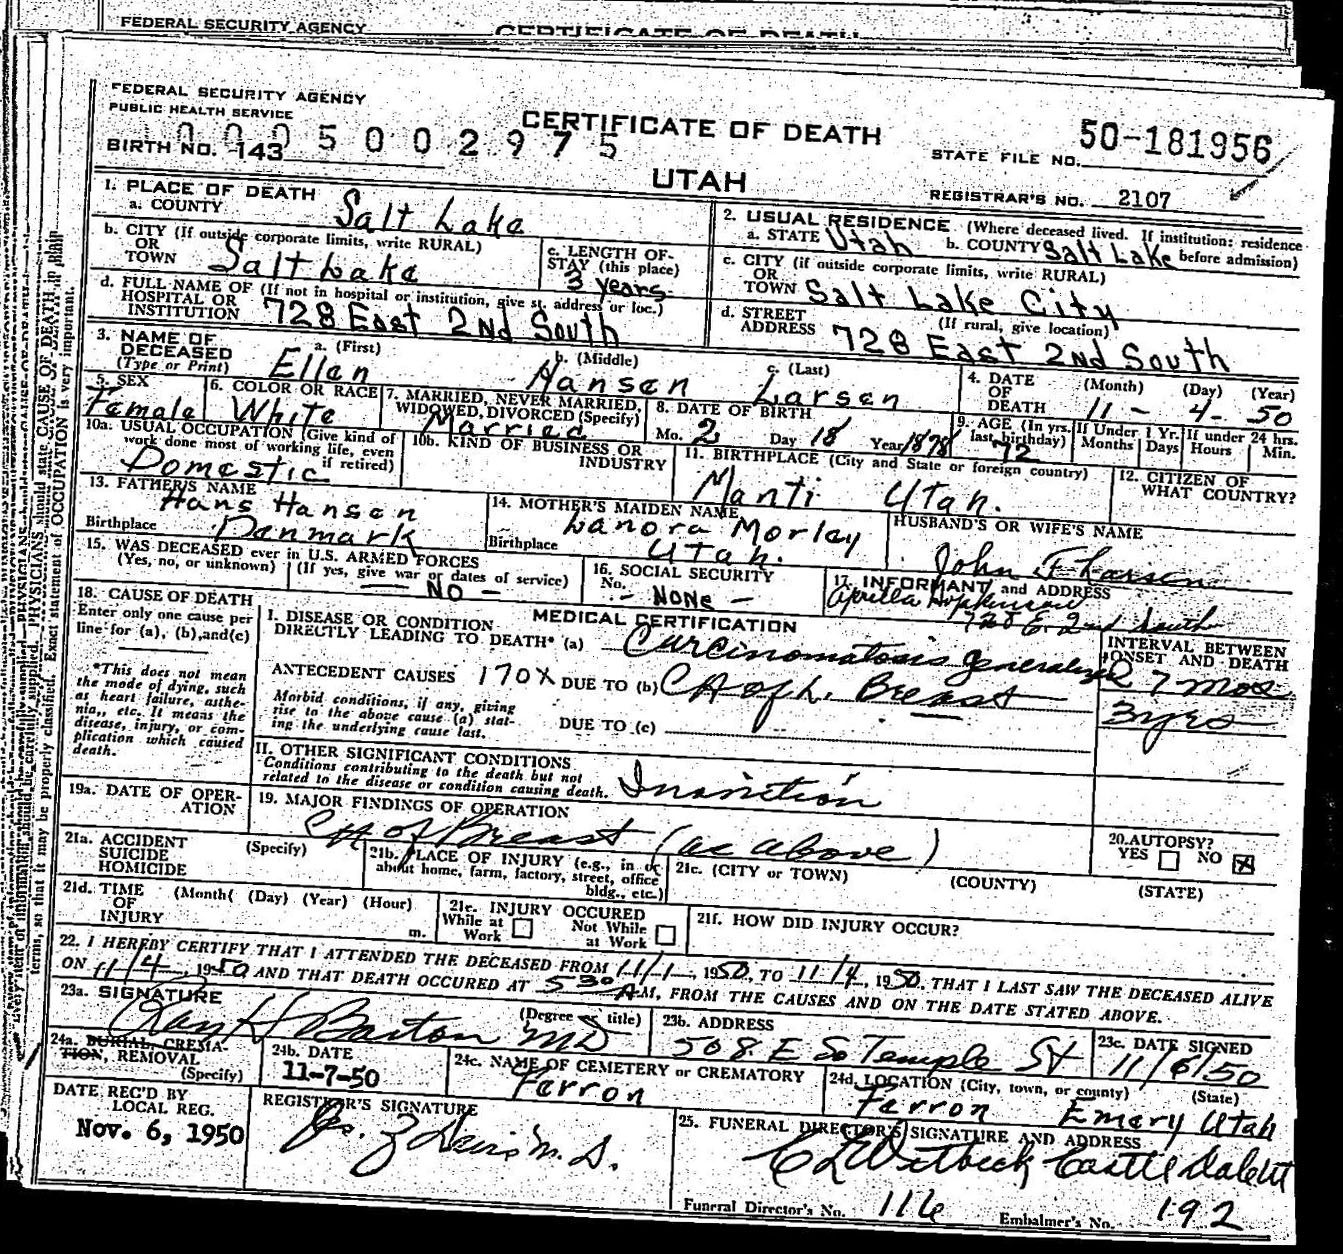 FEDERAL SECURITY AGENCY CERTIFICATE OF DEATH
FEDERAL SECURITY AGENCY
PUBLIC HEALTH SERVICE
CERTIFICATE OF DEATH
50-181956
0005002975
BIRTH NO. 143
STATE FILE NO.
UTAH
REGISTRAR'S NO. 2107
1. PLACE OF DEATH
a. COUNTY Salt Lake
2. USUAL RESIDENCE (Where deceased lived. If institution: residence before admission)
a. STATE Utah b. COUNTY Salt Lake
b. CITY (If outside corporate limits, write RURAL)
OR
TOWN Salt Lake
c. LENGTH OF
STAY (this place)
3 years
c. CITY (if outside corporate limits, write RURAL)
OR
TOWN Salt Lake City
d. FULL NAME OF (If not in hospital or institution, give st. address or loc.)
HOSPITAL OR
INSTITUTION 728 East 2nd South
d. STREET
ADDRESS (If rural, give location)
728 East 2nd South
3. NAME OF
DECEASED
(Type or Print)
a. (First) Ellen
b. (Middle) Hansen
c. (Last) Larsen
4. DATE
OF
DEATH
(Month) (Day) (Year)
11 - 4 - 50
5. SEX
Female
6. COLOR OR RACE
White
7. MARRIED, NEVER MARRIED,
WIDOWED, DIVORCED (Specify)
Married
8. DATE OF BIRTH
Mo. 2 Day 18 Year 1878
9. AGE (In yrs.
last birthday)
72
If Under 1 Yr.
Months Days
If under 24 hrs.
Hours Min.
10a. USUAL OCCUPATION (Give kind of
work done most of working life, even
if retired)
Domestic
10b. KIND OF BUSINESS OR
INDUSTRY
11. BIRTHPLACE (City and State or foreign country)
Manti Utah.
12. CITIZEN OF
WHAT COUNTRY?
13. FATHER'S NAME
Hans Hansen
Birthplace Denmark
14. MOTHER'S MAIDEN NAME
Lanora Morley
Birthplace Utah.
HUSBAND'S OR WIFE'S NAME
John F Larsen
15. WAS DECEASED ever in U.S. ARMED FORCES
(Yes, no, or unknown) (If yes, give war or dates of service)
— NO —
16. SOCIAL SECURITY
No.
- NONE -
17. INFORMANT and ADDRESS
728 E. 2nd South
18. CAUSE OF DEATH
Enter only one cause per
line for (a), (b), and (c)
*This does not mean
the mode of dying, such
as heart failure, asthe-
nia,, etc. It means the
disease, injury, or com-
plication which caused
death.
MEDICAL CERTIFICATION
I. DISEASE OR CONDITION
DIRECTLY LEADING TO DEATH* (a) Curcinomatosis generalized
ANTECEDENT CAUSES 170X DUE TO (b) CA of L. Breast
Morbid conditions, if any, giving
rise to the above cause (a) stat-
ing the underlying cause last.
DUE TO (c)
INTERVAL BETWEEN
ONSET AND DEATH
7 mos
3 yrs
II. OTHER SIGNIFICANT CONDITIONS
Conditions contributing to the death but not
related to the disease or condition causing death.
Inanition
19a. DATE OF OPER-
ATION
19. MAJOR FINDINGS OF OPERATION
CA of Breast (as above)
20. AUTOPSY?
YES NO
21a. ACCIDENT
SUICIDE
HOMICIDE
(Specify)
21b. PLACE OF INJURY (e.g., in or
about home, farm, factory, street, office
bldg., etc.)
21c. (CITY or TOWN) (COUNTY) (STATE)
21d. TIME
OF
INJURY
(Month( (Day) (Year) (Hour)
m.
21e. INJURY OCCURED
While at
Work
Not While
at Work
21f. HOW DID INJURY OCCUR?
22. I HEREBY CERTIFY THAT I ATTENDED THE DECEASED FROM 11/1, 1950, TO 11/4, 1950, THAT I LAST SAW THE DECEASED ALIVE
ON 11/4, 1950 AND THAT DEATH OCCURED AT 530 A M, FROM THE CAUSES AND ON THE DATE STATED ABOVE.
23a. SIGNATURE
Ray H Barton MD
(Degree or title)
23b. ADDRESS
508 E So Temple St
23c. DATE SIGNED
11/6/50
24a. BURIAL, CREMA-
TION, REMOVAL
(Specify)
24b. DATE
11-7-50
24c. NAME OF CEMETERY or CREMATORY
Ferron
24d. LOCATION (City, town, or county) (State)
Ferron Emery Utah
DATE REC'D BY
LOCAL REG.
Nov. 6, 1950
REGISTRAR'S SIGNATURE
25. FUNERAL DIRECTOR'S SIGNATURE AND ADDRESS
C L Witbeck Castle Dale Ut
Funeral Director's No. 116
Embalmer's No. 192